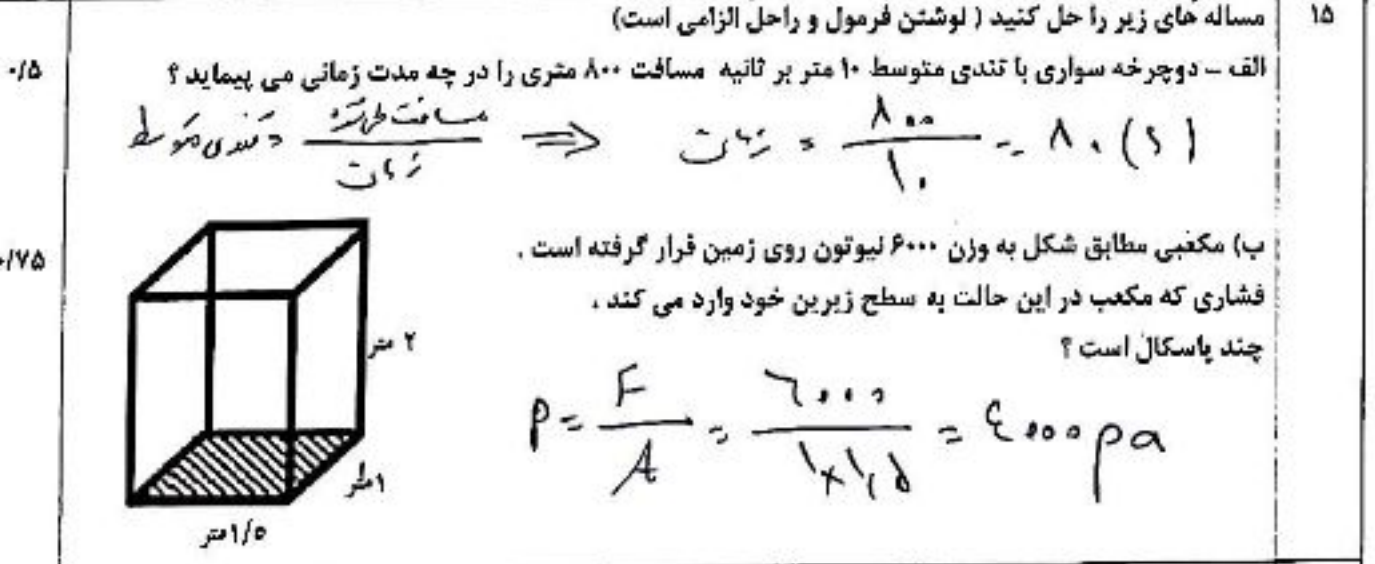 ۱۵
مساله های زیر را حل کنید ( نوشتن فرمول و راحل الزامی است)
الف – دوچرخه سواری با تندی متوسط ۱۰ متر بر ثانیه مسافت ۸۰۰ متری را در چه مدت زمانی می پیماید ؟
۰/۵
تندی متوسط = مسافت طی شده / زمان ⇒ زمان = ۸۰۰ / ۱۰ = ۸۰ (s)
ب) مکعبی مطابق شکل به وزن ۶۰۰۰ نیوتون روی زمین قرار گرفته است .
۰/۷۵
فشاری که مکعب در این حالت به سطح زیرین خود وارد می کند ،
چند پاسکال است ؟
۲ متر
P = F / A = ۶۰۰۰ / ۱×۱٫۵ = ۴۰۰۰ pa
۱متر
۱/۵متر